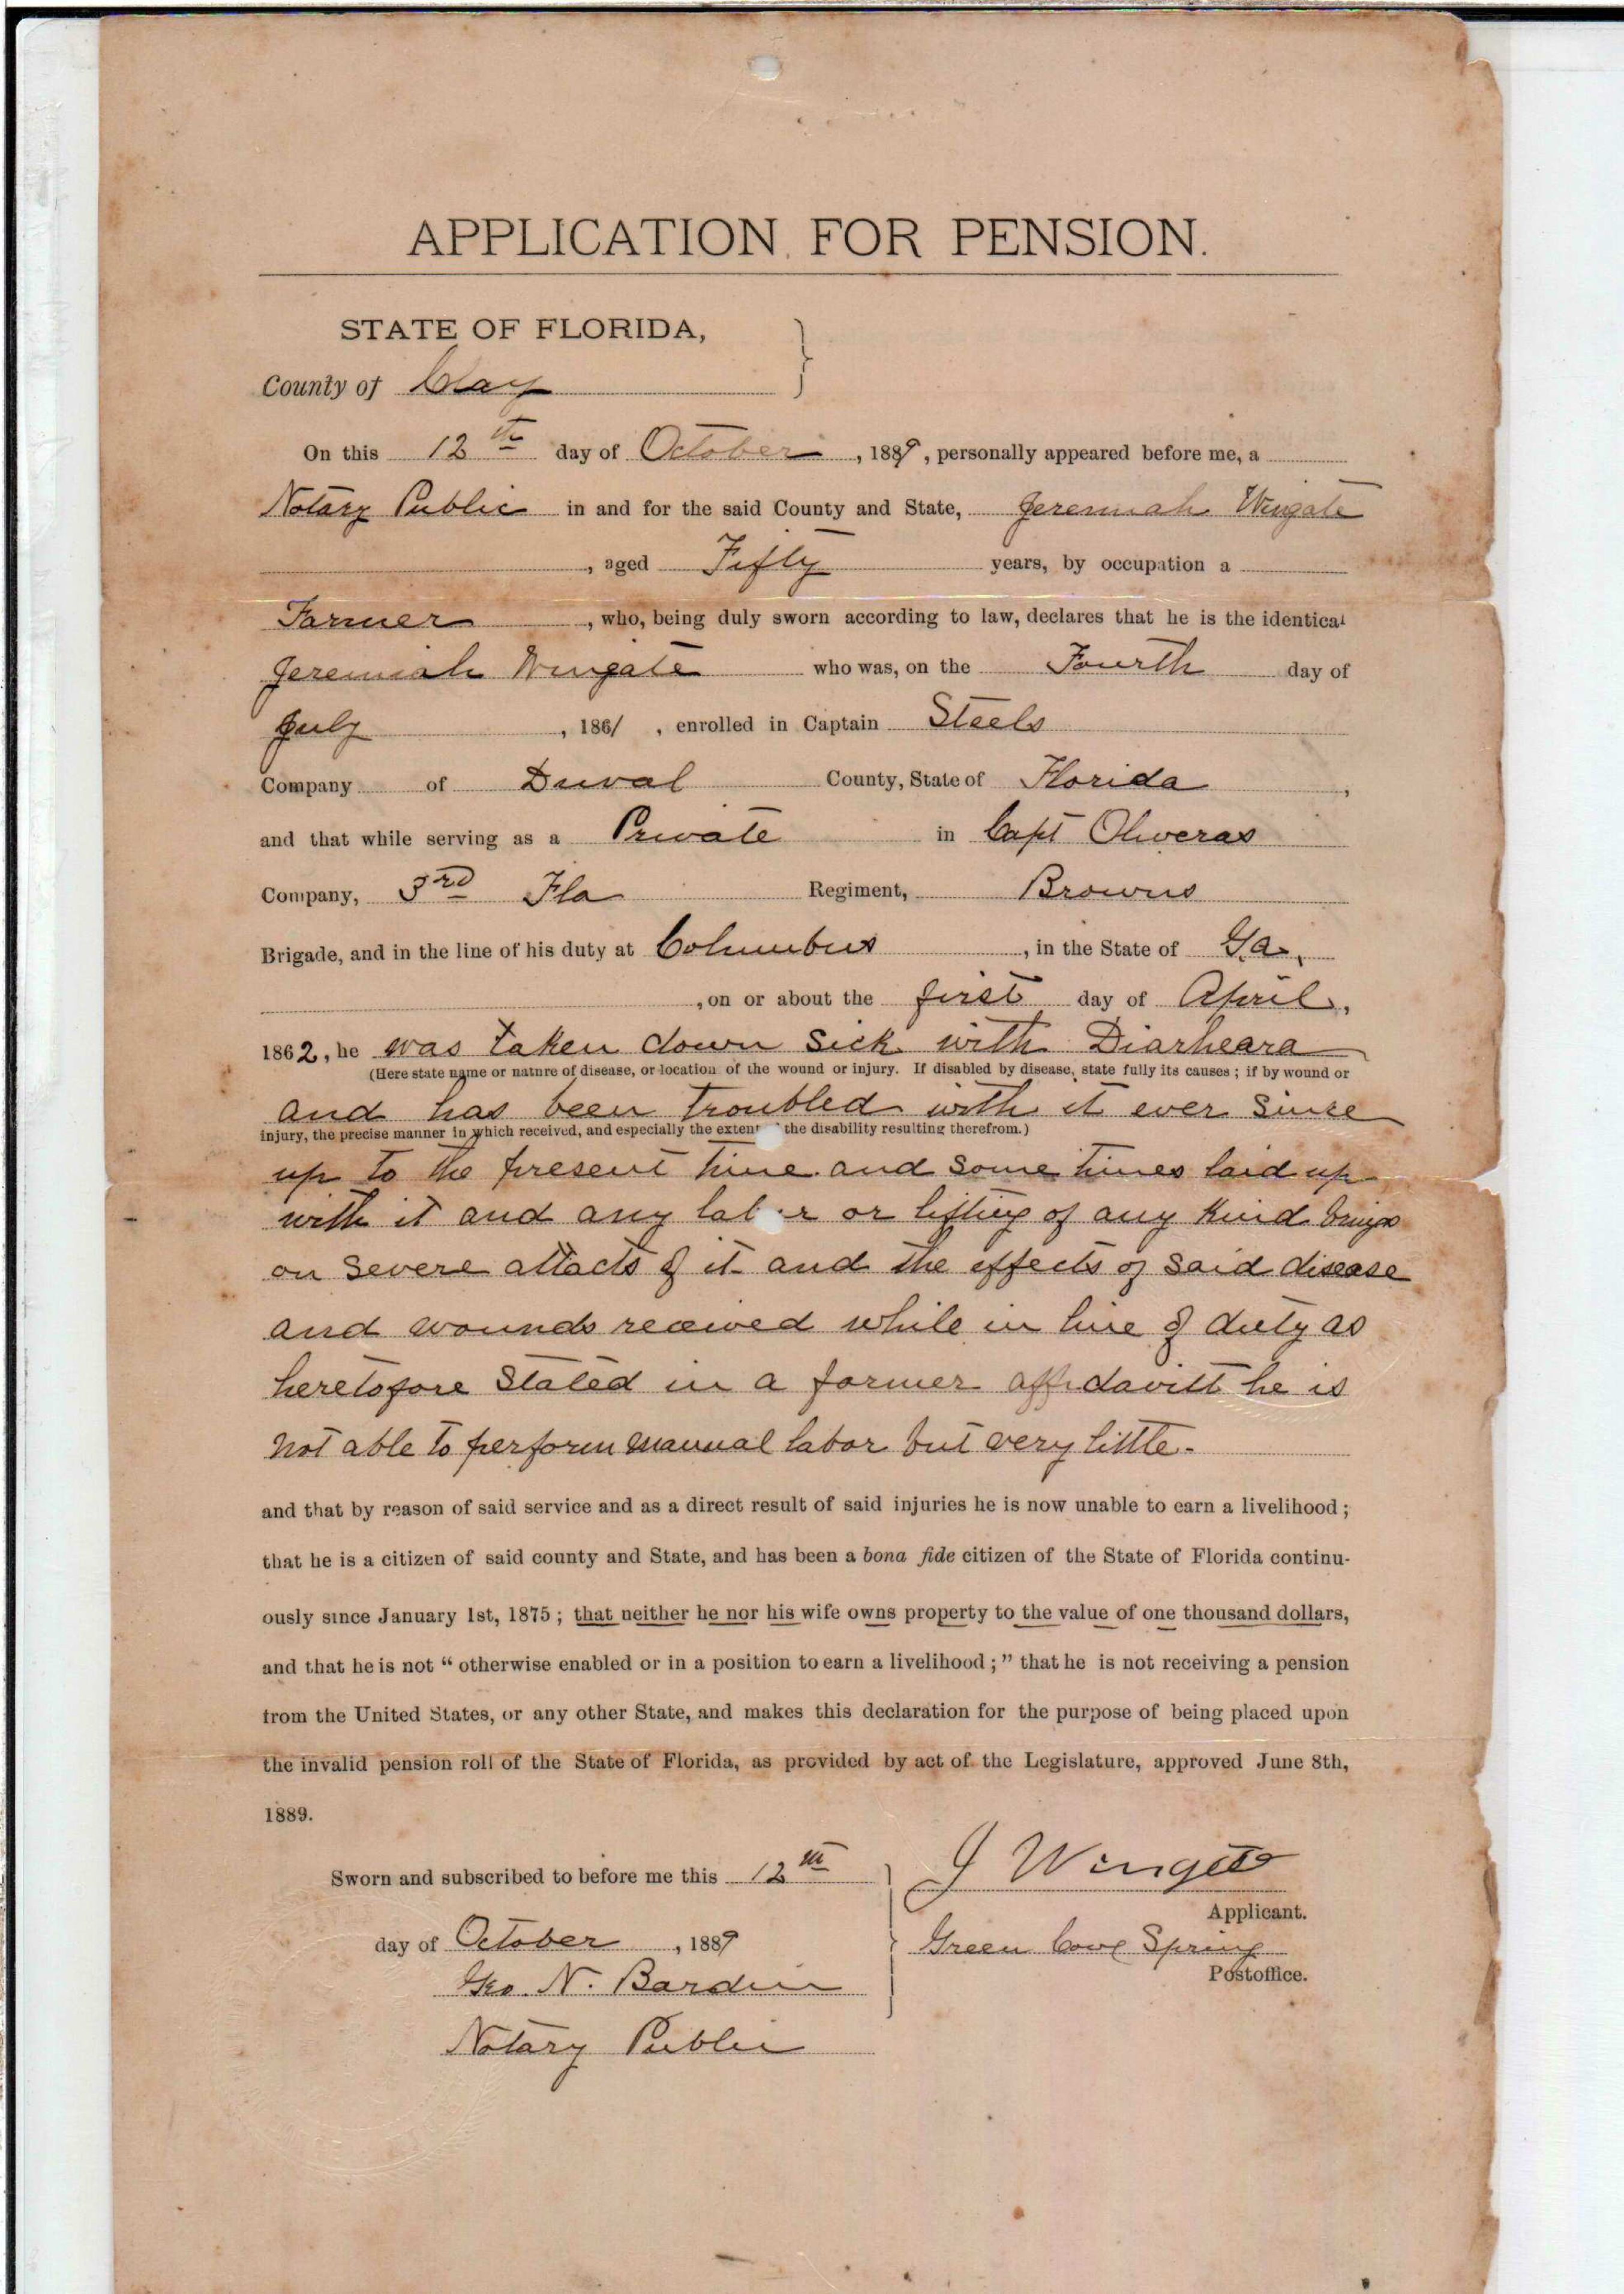 APPLICATION FOR PENSION.
STATE OF FLORIDA,
County of Clay
On this 12th day of October, 1889, personally appeared before me, a
Notary Public in and for the said County and State, Jeremiah Wingate
, aged Fifty years, by occupation a
Farmer, who, being duly sworn according to law, declares that he is the identical
Jeremiah Wingate who was, on the Fourth day of
July, 1861, enrolled in Captain Steels
Company of Duval County, State of Florida,
and that while serving as a Private in Capt Oliveras
Company, 3rd Fla Regiment, Browns
Brigade, and in the line of his duty at Columbus, in the State of Ga,
, on or about the first day of April,
1862, he was taken down sick with Diarheara
(Here state name or nature of disease, or location of the wound or injury. If disabled by disease, state fully its causes; if by wound or
and has been troubled with it ever since
injury, the precise manner in which received, and especially the extent the disability resulting therefrom.)
up to the present time and some times laid up
with it and any labor or lifting of any kind brings
on severe attacts of it and the effects of said disease
and wounds received while in line of duty as
heretofore stated in a former affidavitt he is
not able to perform manual labor but very little.
and that by reason of said service and as a direct result of said injuries he is now unable to earn a livelihood;
that he is a citizen of said county and State, and has been a bona fide citizen of the State of Florida continu-
ously since January 1st, 1875; that neither he nor his wife owns property to the value of one thousand dollars,
and that he is not "otherwise enabled or in a position to earn a livelihood;" that he is not receiving a pension
from the United States, or any other State, and makes this declaration for the purpose of being placed upon
the invalid pension roll of the State of Florida, as provided by act of the Legislature, approved June 8th,
1889.
Sworn and subscribed to before me this 12th
day of October, 1889
Geo. N. Bardin
Notary Public
J Wingate
Applicant.
Green Cove Spring
Postoffice.